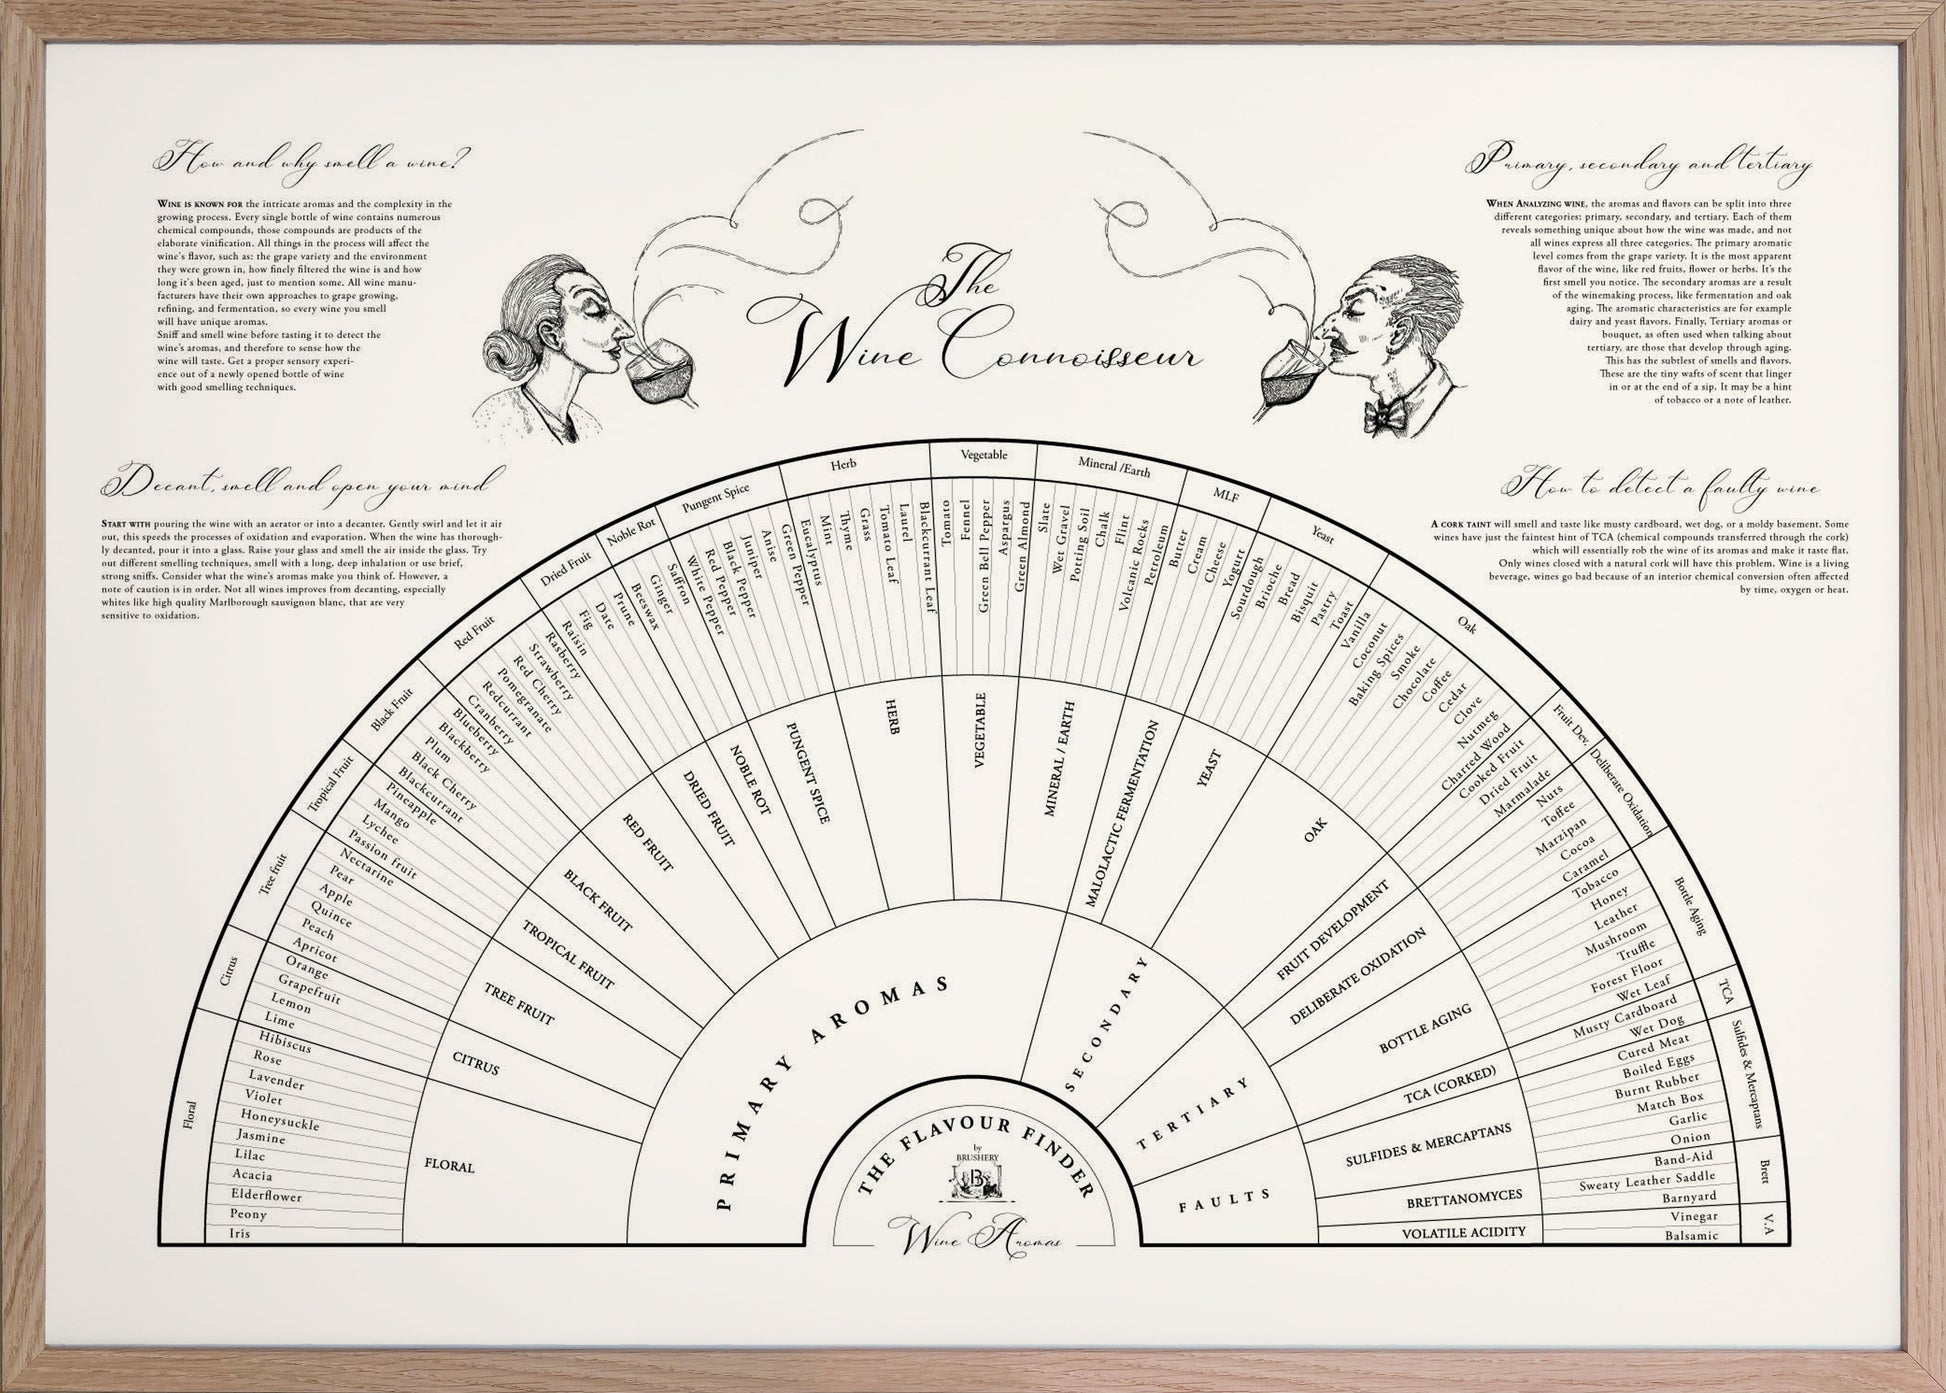 How and why smell a wine?
WINE IS KNOWN FOR the intricate aromas and the complexity in the
growing process. Every single bottle of wine contains numerous
chemical compounds, those compounds are products of the
elaborate vinification. All things in the process will affect the
wine's flavor, such as: the grape variety and the environment
they were grown in, how finely filtered the wine is and how
long it's been aged, just to mention some. All wine manu-
facturers have their own approaches to grape growing,
refining, and fermentation, so every wine you smell
will have unique aromas.
Sniff and smell wine before tasting it to detect the
wine's aromas, and therefore to sense how the
wine will taste. Get a proper sensory experi-
ence out of a newly opened bottle of wine
with good smelling techniques.
Decant, smell and open your mind
START WITH pouring the wine with an aerator or into a decanter. Gently swirl and let it air
out, this speeds the processes of oxidation and evaporation. When the wine has thorough-
ly decanted, pour it into a glass. Raise your glass and smell the air inside the glass. Try
out different smelling techniques, smell with a long, deep inhalation or use brief,
strong sniffs. Consider what the wine's aromas make you think of. However, a
note of caution is in order. Not all wines improves from decanting, especially
whites like high quality Marlborough sauvignon blanc, that are very
sensitive to oxidation.
The
Wine Connoisseur
Primary, secondary and tertiary
WHEN ANALYZING WINE, the aromas and flavors can be split into three
different categories: primary, secondary, and tertiary. Each of them
reveals something unique about how the wine was made, and not
all wines express all three categories. The primary aromatic
level comes from the grape variety. It is the most apparent
flavor of the wine, like red fruits, flower or herbs. It's the
first smell you notice. The secondary aromas are a result
of the winemaking process, like fermentation and oak
aging. The aromatic characteristics are for example
dairy and yeast flavors. Finally, Tertiary aromas or
bouquet, as often used when talking about
tertiary, are those that develop through aging.
This has the subtlest of smells and flavors.
These are the tiny wafts of scent that linger
in or at the end of a sip. It may be a hint
of tobacco or a note of leather.
How to detect a faulty wine
A CORK TAINT will smell and taste like musty cardboard, wet dog, or a moldy basement. Some
wines have just the faintest hint of TCA (chemical compounds transferred through the cork)
which will essentially rob the wine of its aromas and make it taste flat.
Only wines closed with a natural cork will have this problem. Wine is a living
beverage, wines go bad because of an interior chemical conversion often affected
by time, oxygen or heat.
Floral
Citrus
Tree fruit
Tropical Fruit
Black Fruit
Red Fruit
Dried Fruit
Noble Rot
Pungent Spice
Herb
Vegetable
Mineral /Earth
MLF
Yeast
Oak
Fruit Dev.
Deliberate Oxidation
Bottle Aging
TCA
Sulfides & Mercaptans
Brett
V.A
Iris
Peony
Elderflower
Acacia
Lilac
Jasmine
Honeysuckle
Violet
Lavender
Rose
Hibiscus
Lime
Lemon
Grapefruit
Orange
Apricot
Peach
Quince
Apple
Pear
Nectarine
Passion fruit
Lychee
Mango
Pineapple
Blackcurrant
Black Cherry
Plum
Blackberry
Blueberry
Cranberry
Redcurrant
Pomegranate
Red Cherry
Strawberry
Rasberry
Raisin
Fig
Date
Prune
Beeswax
Ginger
Saffron
White Pepper
Red Pepper
Black Pepper
Juniper
Anise
Green Pepper
Eucalyptus
Mint
Thyme
Grass
Tomato Leaf
Laurel
Blackcurrant Leaf
Tomato
Fennel
Green Bell Pepper
Aspargus
Green Almond
Slate
Wet Gravel
Potting Soil
Chalk
Flint
Volcanic Rocks
Petroleum
Butter
Cream
Cheese
Yogurt
Sourdough
Brioche
Bread
Bisquit
Pastry
Toast
Vanilla
Coconut
Baking Spices
Smoke
Chocolate
Coffee
Cedar
Clove
Nutmeg
Charred Wood
Cooked Fruit
Dried Fruit
Marmalade
Nuts
Toffee
Marzipan
Cocoa
Caramel
Tobacco
Honey
Leather
Mushroom
Truffle
Forest Floor
Wet Leaf
Musty Cardboard
Wet Dog
Cured Meat
Boiled Eggs
Burnt Rubber
Match Box
Garlic
Onion
Band-Aid
Sweaty Leather Saddle
Barnyard
Vinegar
Balsamic
FLORAL
CITRUS
TREE FRUIT
TROPICAL FRUIT
BLACK FRUIT
RED FRUIT
DRIED FRUIT
NOBLE ROT
PUNGENT SPICE
HERB
VEGETABLE
MINERAL / EARTH
MALOLACTIC FERMENTATION
YEAST
OAK
FRUIT DEVELOPMENT
DELIBERATE OXIDATION
BOTTLE AGING
TCA (CORKED)
SULFIDES & MERCAPTANS
BRETTANOMYCES
VOLATILE ACIDITY
PRIMARY AROMAS
SECONDARY
TERTIARY
FAULTS
THE FLAVOUR FINDER
by
BRUSHERY
B
Wine Aromas